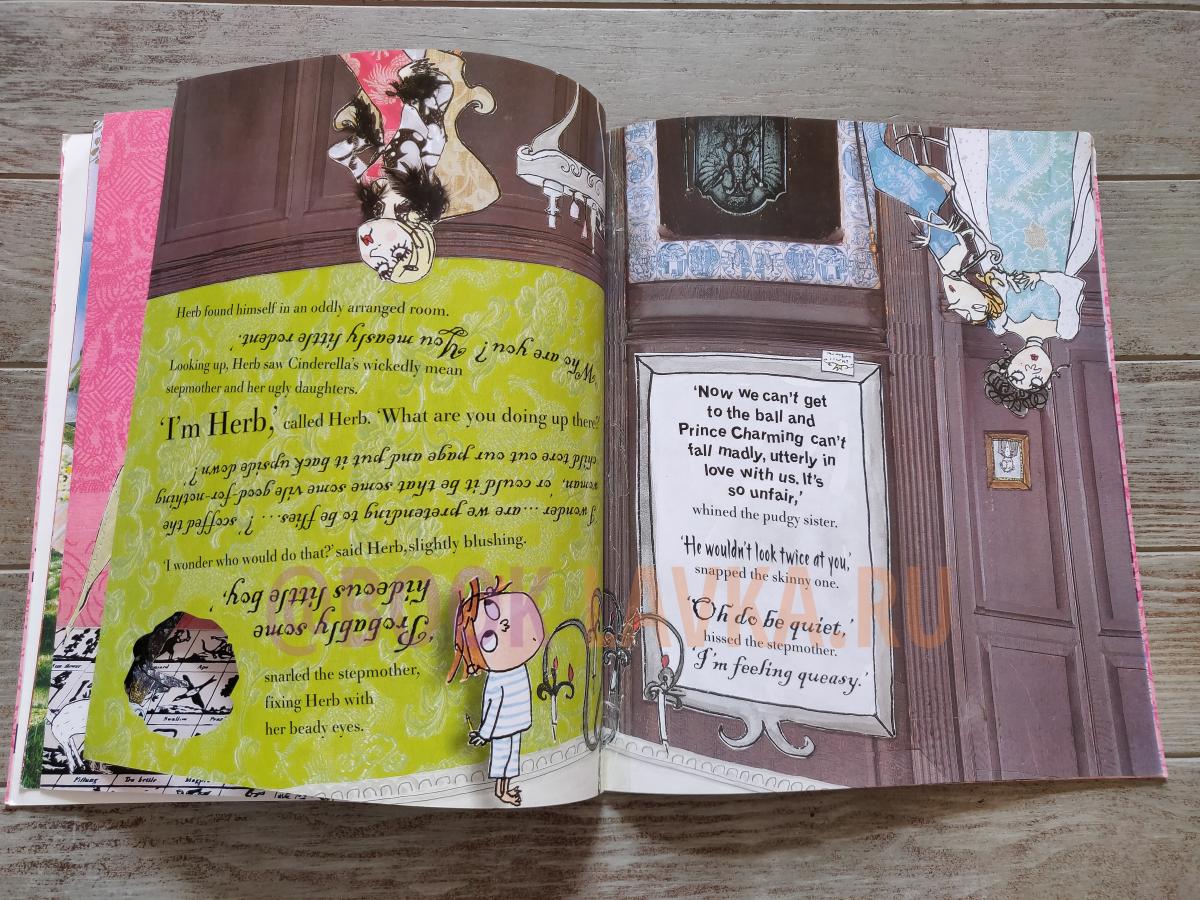 Herb found himself in an oddly arranged room.
'Who are you? You measly little rodent.'
Looking up, Herb saw Cinderella's wickedly mean
stepmother and her ugly daughters.
'I'm Herb,' called Herb. 'What are you doing up there?'
'I wonder ...are we pretending to be flies... ?' scoffed the
woman, 'or could it be that some some vile good-for-nothing
child tore out our page and put it back upside down?'
'I wonder who would do that?' said Herb, slightly blushing.
'Probably some
hideous little boy,'
snarled the stepmother,
fixing Herb with
her beady eyes.
Ape
Swallow
'Now we can't get
to the ball and
Prince Charming can't
fall madly, utterly in
love with us. It's
so unfair,'
whined the pudgy sister.
'He wouldn't look twice at you,'
snapped the skinny one.
'Oh do be quiet,'
hissed the stepmother.
'I'm feeling queasy.'
@BOOK-LAVKA.RU